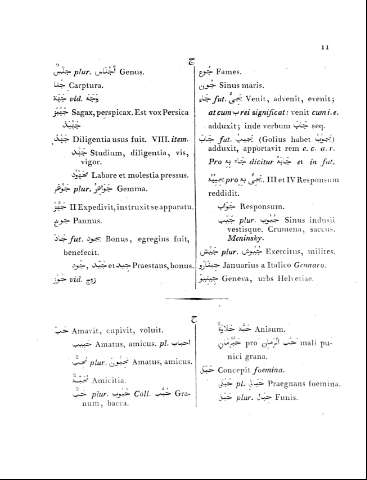 11
ج
جِنْس plur. أَجْنَاس Genus.
جَنَا Carptura.
جِهَة vid. وَجْه
Sagax, perspicax. Est vox Persica
Diligentia usus fuit. VIII. item.
Studium, diligentia, vis,
vigor.
Labore et molestia pressus.
جَوْهَر plur. جَوَاهِر Gemma.
II Expedivit, instruxit se apparatu.
جوخ Pannus.
جَادَ fut. يجود Bonus, egregius fuit,
benefecit.
جُود, جَيِّد et Praestans, bonus.
جَوْز vid. زوج
جُوع Fames.
جُون Sinus maris.
جَاءَ fut. يَجِي Venit, advenit, evenit;
at cum ب rei significat: venit cum i. e.
adduxit; inde verbum جَاب seq.
جَاب fut. يَجِيب (Golius habet يَجُوب)
adduxit, apportavit rem c. c. a. r.
Pro جَاء بِه dicitur جَابَهُ et in fut.
يَجِيبُه pro يَجِي بِه. III et IV Responsum
reddidit.
جَوَاب Responsum.
جَيْب plur. جُيُوب Sinus indusii
vestisque. Crumena, saccus.
Meninsky.
جَيْش plur. جُيُوش Exercitus, milites.
Januarius a Italico Gennaro.
Geneva, urbs Helvetiae.
ح
حَبَّ Amavit, cupivit, voluit.
حبيب Amatus, amicus. pl. احباب
plur. Amatus, amicus.
Amicitia.
حَبّ plur. حُبُوب Coll. حَبّ Gra-
num, bacca.
حَبَّة حَلَاوَة Anisum.
pro حَبّ الرُّمَّان mali pu-
nici grana.
حَبِل Concepit foemina.
pl. Praegnans foemina.
حَبْل plur. حِبَال Funis.